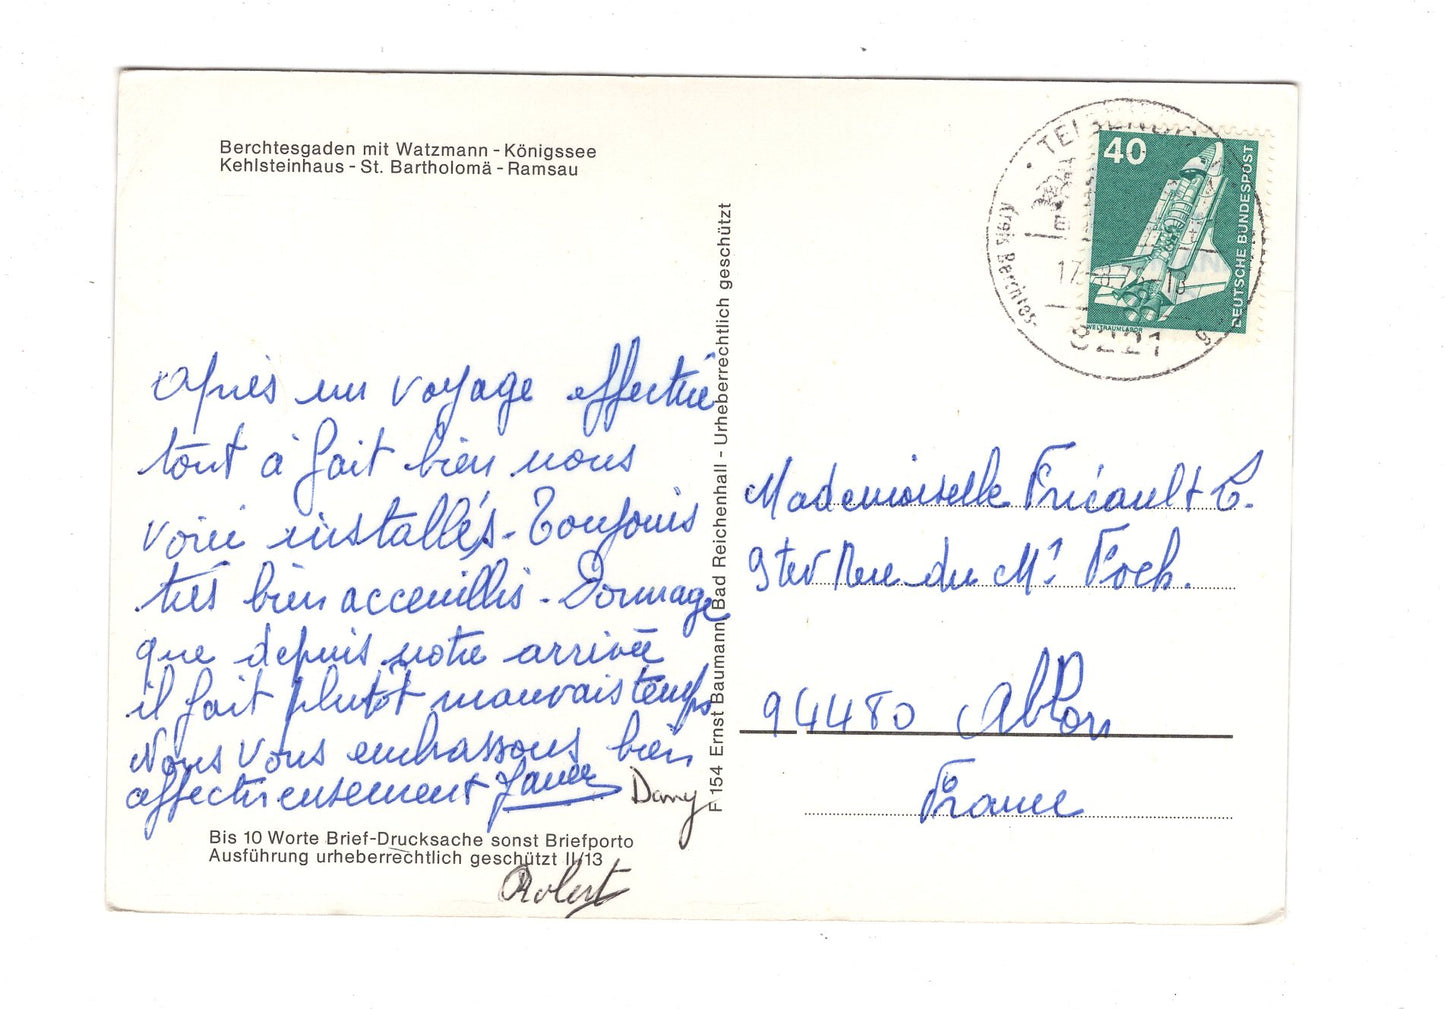 Berchtesgaden mit Watzmann - Königssee
Kehlsteinhaus - St. Bartholomä - Ramsau
après un voyage effectué
tout à fait bien nous
voici installés - Toujours
très bien acceuillis - Dommage
que depuis notre arrivée
il fait plutôt mauvais temps
Nous vous embrassons bien
affectueusement
Dany
Robert
Bis 10 Worte Brief-Drucksache sonst Briefporto
Ausführung urheberrechtlich geschützt II/13
F 154 Ernst Baumann, Bad Reichenhall - Urheberrechtlich geschützt
40
DEUTSCHE BUNDESPOST
WELTRAUMLABOR
Kreis Berchtes-
8221
Mademoiselle Fricault C.
9 ter Rue du Mal Foch.
94480 Ablon
France